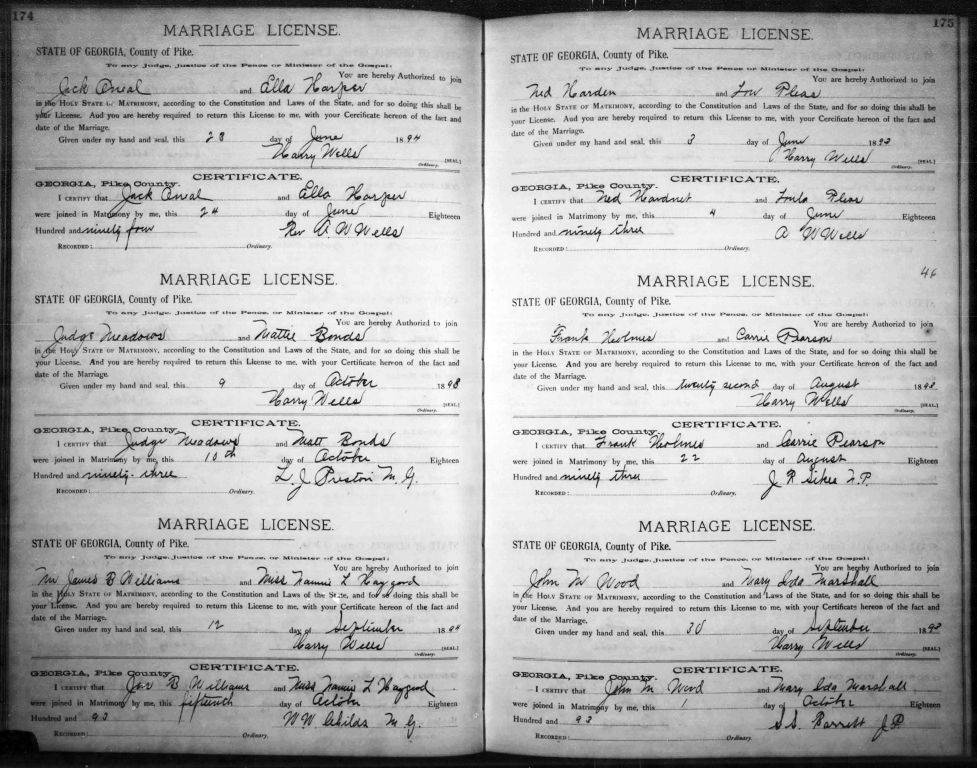 174
MARRIAGE LICENSE.
STATE OF GEORGIA, County of Pike.
To any Judge, Justice of the Peace, or Minister of the Gospel:
You are hereby Authorized to join
Jack Oneal and Ella Harper
in the HOLY STATE OF MATRIMONY, according to the Constitution and Laws of the State, and for so doing this shall be
your License. And you are hereby required to return this License to me, with your Certificate hereon of the fact and
date of the Marriage.
Given under my hand and seal, this 23 day of June 1894
Harry Wells [SEAL]
Ordinary.
CERTIFICATE.
GEORGIA, Pike County.
I CERTIFY that Jack Oneal and Ella Harper
were joined in Matrimony by me, this 24 day of June Eighteeen
Hundred and ninety four Rev A. W Wells
RECORDED: Ordinary.
MARRIAGE LICENSE.
STATE OF GEORGIA, County of Pike.
To any Judge, Justice of the Peace, or Minister of the Gospel:
You are hereby Authorized to join
Judge Meadows and Mattie Bonds
in the HOLY STATE OF MATRIMONY, according to the Constitution and Laws of the State, and for so doing this shall be
your License. And you are hereby required to return this License to me, with your Certificate hereon of the fact and
date of the Marriage.
Given under my hand and seal, this 9 day of October 1893
Harry Wells [SEAL]
Ordinary.
CERTIFICATE.
GEORGIA, Pike County.
I CERTIFY that Judge Meadows and Matt Bonds
were joined in Matrimony by me, this 10th day of October Eighteen
Hundred and ninety-three L. J Preston M. G.
RECORDED: Ordinary.
MARRIAGE LICENSE.
STATE OF GEORGIA, County of Pike.
To any Judge, Justice of the Peace, or Minister of the Gospel:
You are hereby Authorized to join
Mr James B Williams and Miss Nannie L Haygood
in the HOLY STATE OF MATRIMONY, according to the Constitution and Laws of the State, and for so doing this shall be
your License. And you are hereby required to return this License to me, with your Certificate hereon of the fact and
date of the Marriage.
Given under my hand and seal, this 12 day of September 1894
Harry Wells [SEAL]
Ordinary.
CERTIFICATE.
GEORGIA, Pike County.
I CERTIFY that Jas B Williams and Miss Nannie L Haygood
were joined in Matrimony by me, this fifteenth day of October Eighteen
Hundred and 93 W W Childs M. G.
RECORDED: Ordinary.
175
MARRIAGE LICENSE.
STATE OF GEORGIA, County of Pike.
To any Judge, Justice of the Peace, or Minister of the Gospel:
You are hereby Authorized to join
Ned Harden and Lou Pleas
in the HOLY STATE OF MATRIMONY, according to the Constitution and Laws of the State, and for so doing this shall be
your License. And you are hereby required to return this License to me, with your Certificate hereon of the fact and
date of the Marriage.
Given under my hand and seal, this 3 day of June 1893
Harry Wells [SEAL]
Ordinary.
CERTIFICATE.
GEORGIA, Pike County.
I CERTIFY that Ned and Pleas
were joined in Matrimony by me, this 4 day of June Eighteen
Hundred and ninety three A W Wells
RECORDED: Ordinary.
46
MARRIAGE LICENSE.
STATE OF GEORGIA, County of Pike.
To any Judge, Justice of the Peace, or Minister of the Gospel:
You are hereby Authorized to join
Frank Holmes and Carrie Pearson
in the HOLY STATE OF MATRIMONY, according to the Constitution and Laws of the State, and for so doing this shall be
your License. And you are hereby required to return this License to me, with your Certificate hereon of the fact and
date of the Marriage.
Given under my hand and seal, this twenty second day of August 1893
Harry Wells [SEAL]
Ordinary.
CERTIFICATE.
GEORGIA, Pike County.
I CERTIFY that Frank Holmes and Carrie Pearson
were joined in Matrimony by me, this 22 day of August Eighteen
Hundred and ninety three J R Sikes J. P.
RECORDED: Ordinary.
MARRIAGE LICENSE.
STATE OF GEORGIA, County of Pike.
To any Judge, Justice of the Peace, or Minister of the Gospel:
You are hereby Authorized to join
John M Wood and Mary Ida Marshall
in the HOLY STATE OF MATRIMONY, according to the Constitution and Laws of the State, and for so doing this shall be
your License. And you are hereby required to return this License to me, with your Certificate hereon of the fact and
date of the Marriage.
Given under my hand and seal, this 30 day of September 1893
Harry Wells [SEAL]
Ordinary.
CERTIFICATE.
GEORGIA, Pike County.
I CERTIFY that John M Wood and Mary Ida Marshall
were joined in Matrimony by me, this 1 day of October Eighteen
Hundred and 93 S. S. Barrett J. P.
RECORDED: Ordinary.